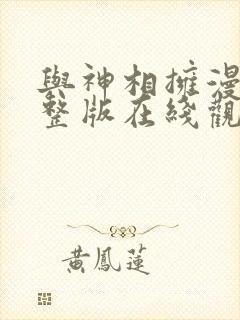 與神相擁漫
整版在綫觀
黃鳳蓮